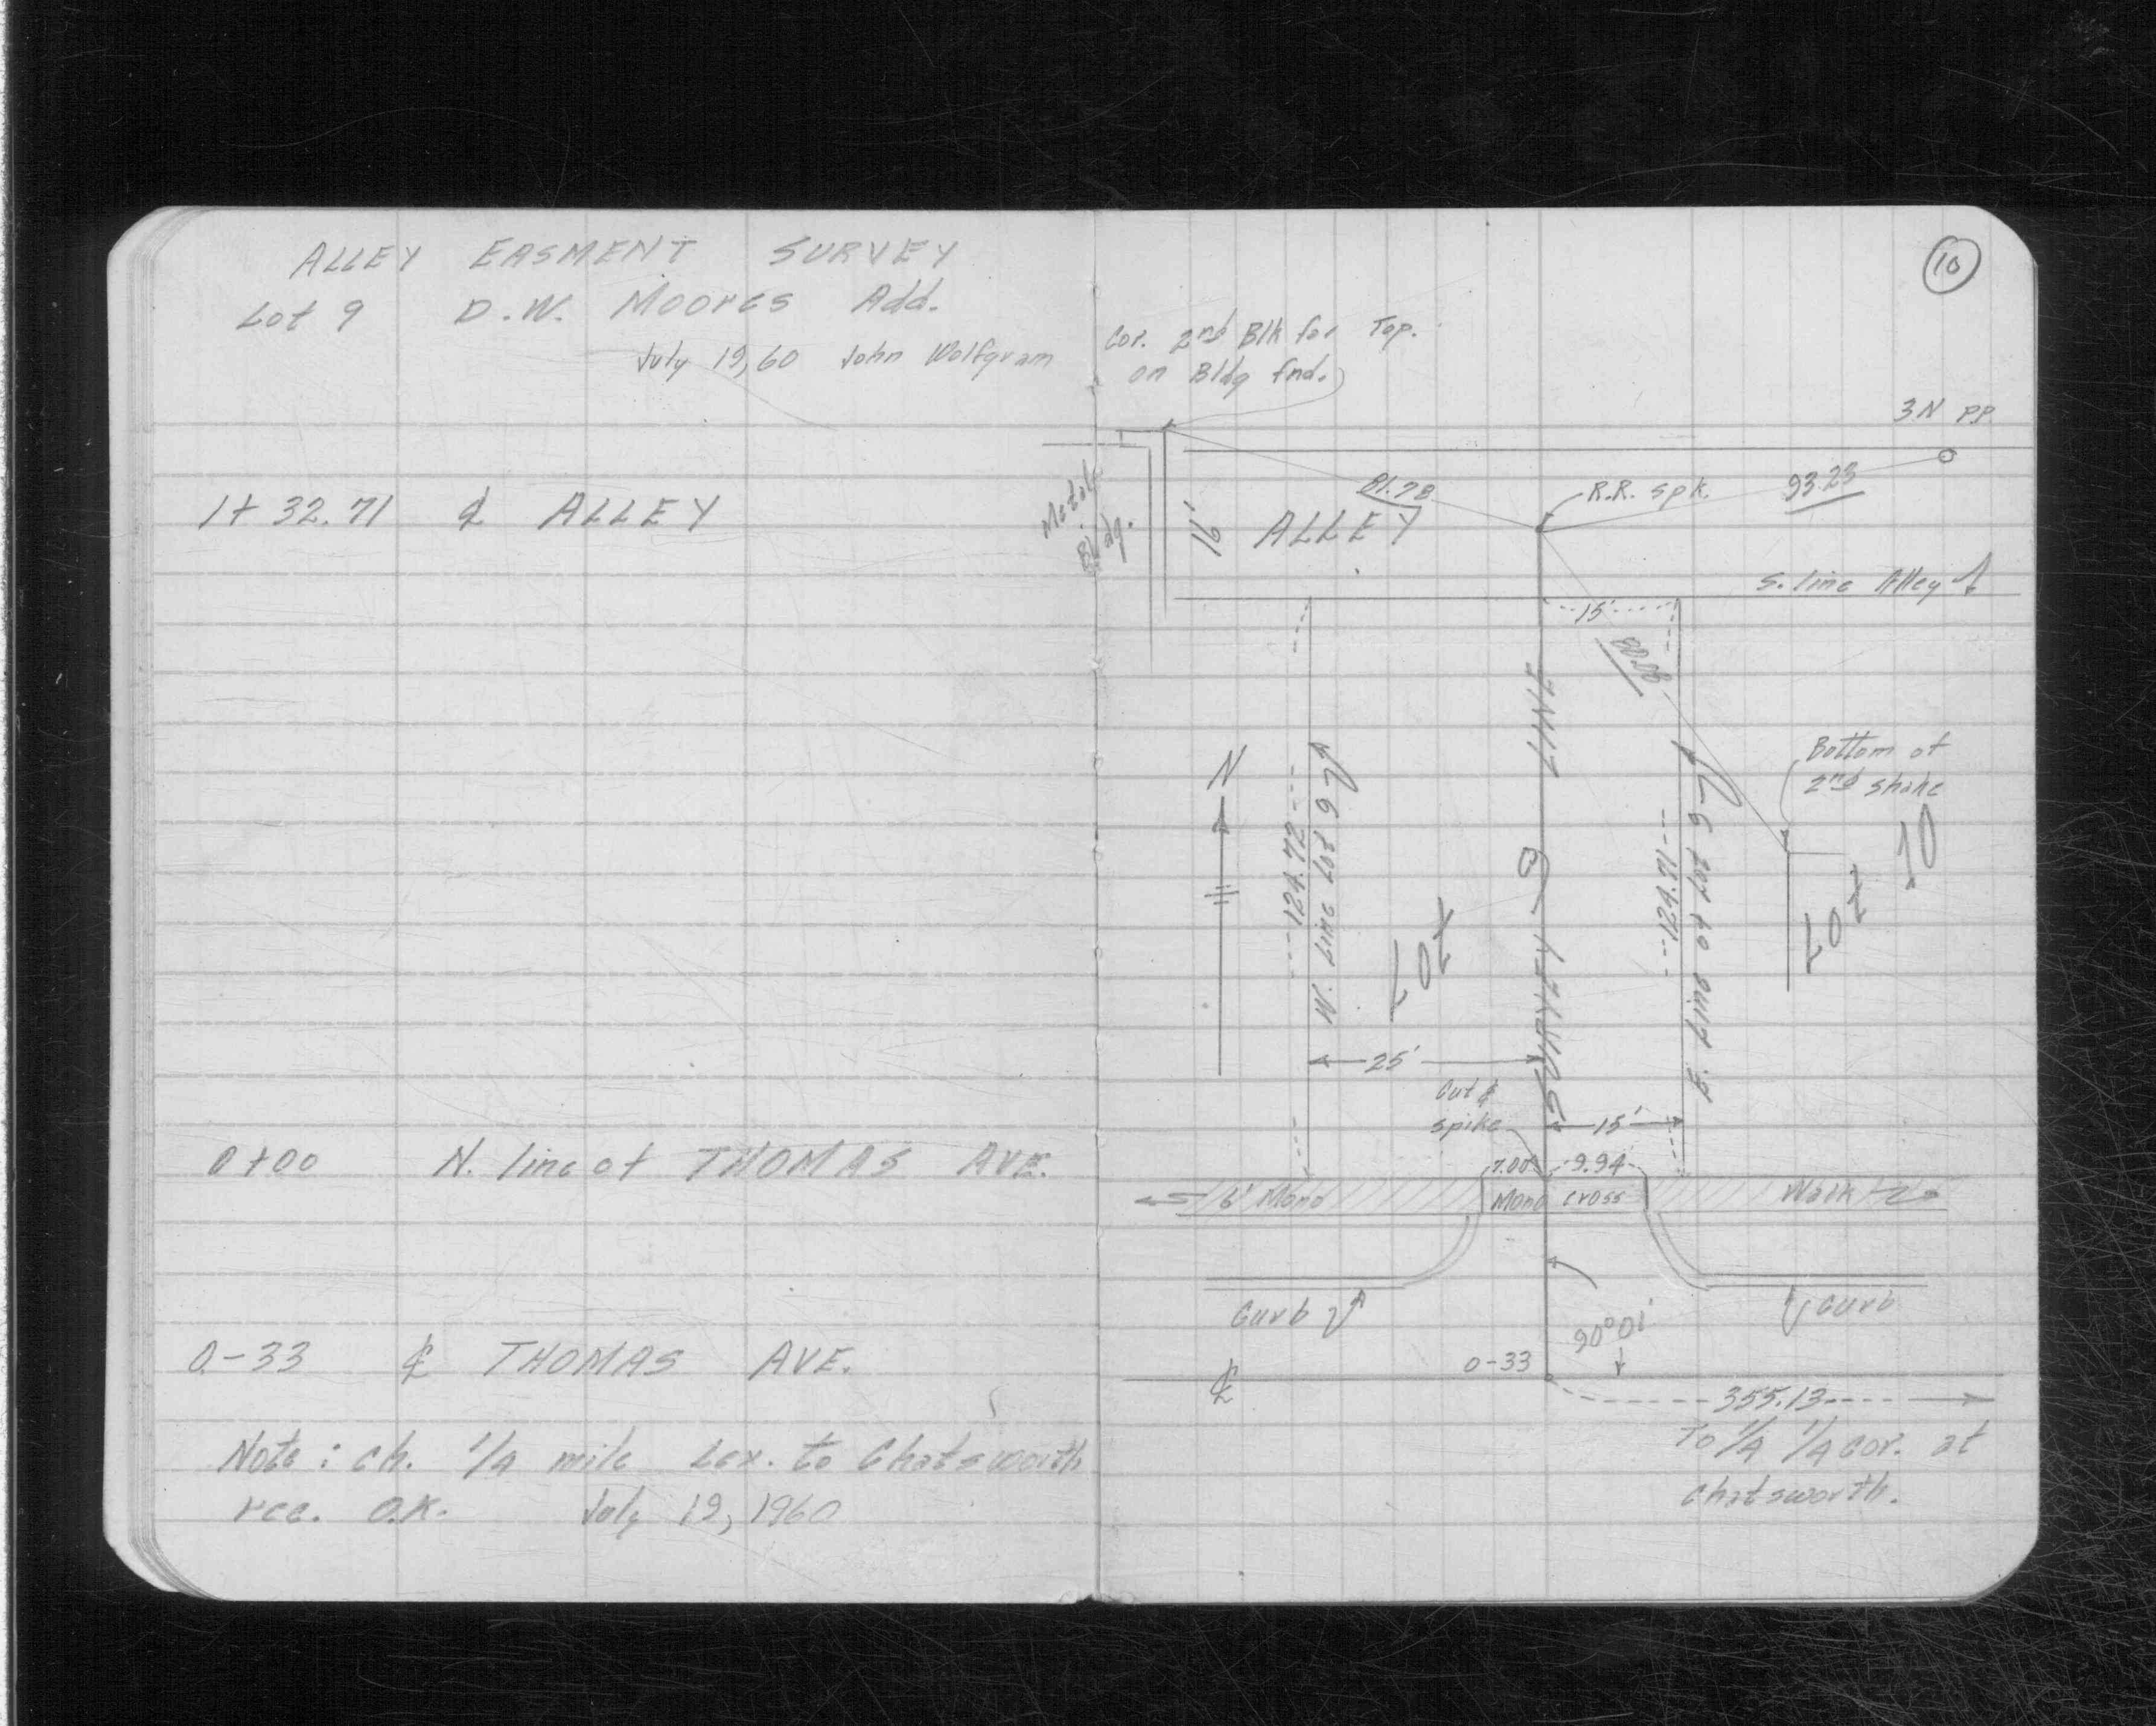 ALLEY EASMENT SURVEY
Lot 9 D.W. Moores Add.
July 19, 60 John Wolfgram
1+32.71 ℄ ALLEY
0+00 N. line of THOMAS AVE.
0-33 ℄ THOMAS AVE.
Note: ch. 1/4 mile Lex. to Chatsworth
rec. O.K. July 19, 1960
10
Cor. 2nd Blk for Top.
on Bldg fnd.
3N PP
81.78
R.R. spk.
93.23
Bldg.
16' ALLEY
S. line Alley
15'
80.08
N
124.72
W. Line Lot 9
Lot
9
SURVEY LINE
124.71
E. Line of Lot 9
Bottom of
2nd shake
Lot 10
25'
Cut &
spike
15'
7.00
9.94
6' Mono
Mono cross
Walk
Curb
Curb
90°01'
0-33
℄
355.13
To 1/4 1/4 cor. at
Chatsworth.